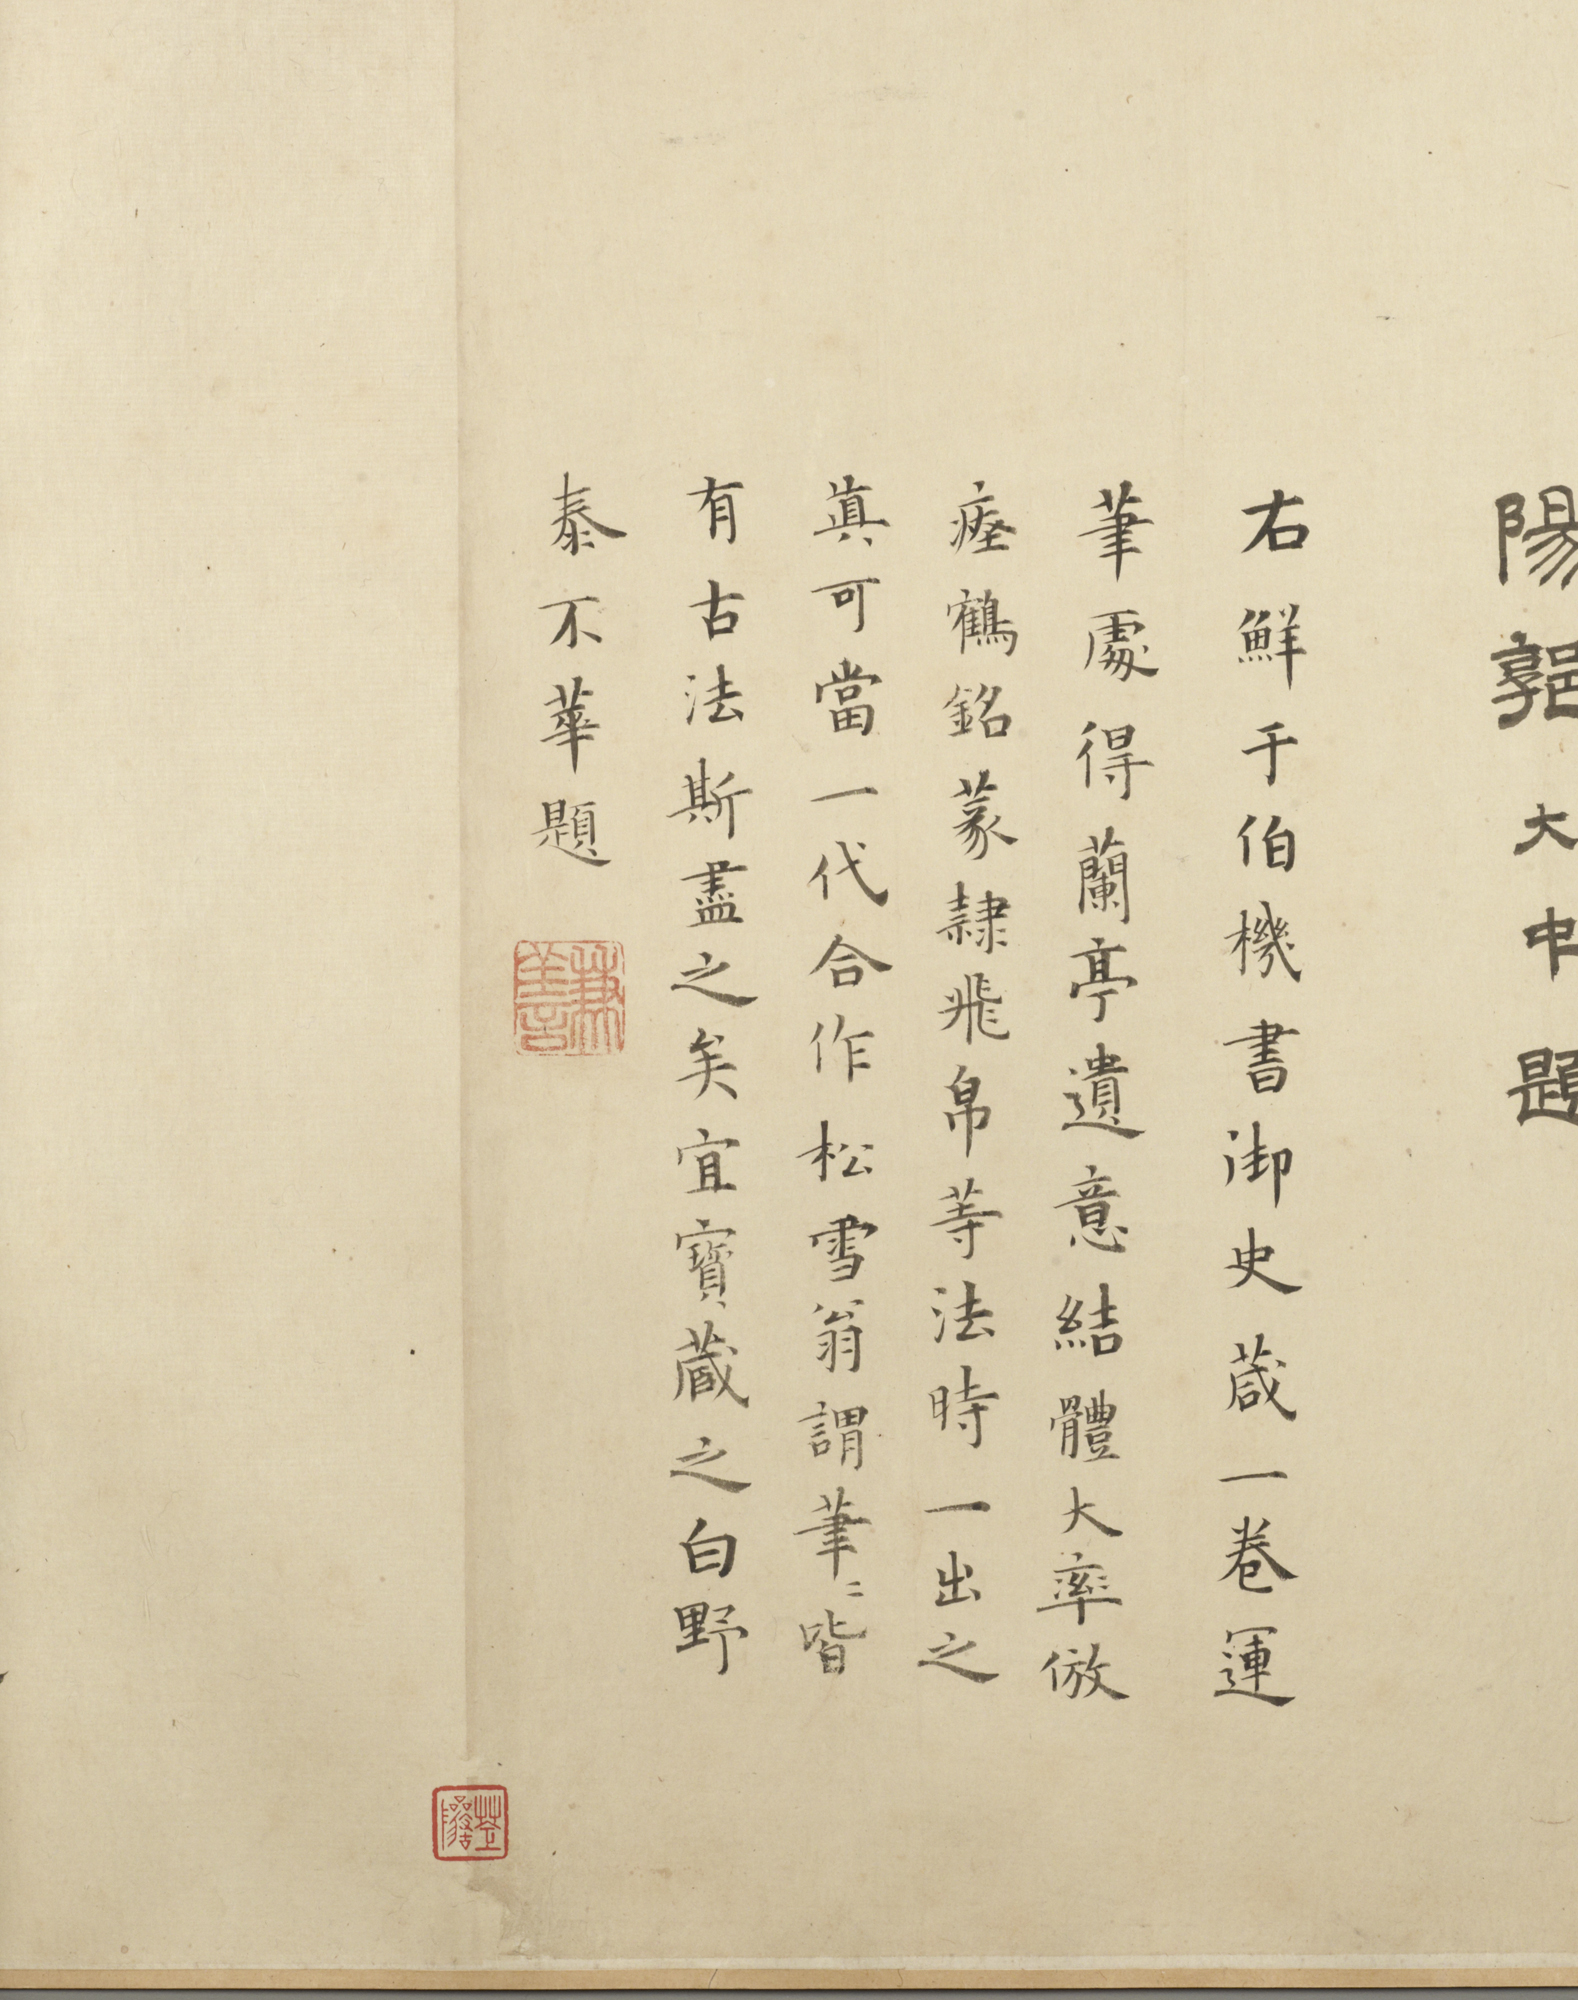 陽郭大中題
右鮮于伯機書御史葴一卷運
筆處得蘭亭遺意結體大率倣
瘞鶴銘篆隸飛帛等法時一出之
真可當一代合作松雪翁謂筆〻皆
有古法斯盡之矣宜寶藏之白野
泰不華題
兼善